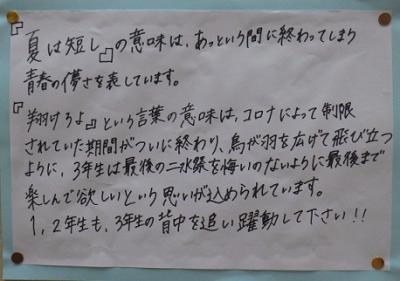 『夏は短し』の意味は、あっという間に終わってしまう
青春の儚さを表しています。
『翔けろよ』という言葉の意味は、コロナによって制限
されていた期間がついに終わり、鳥が羽を広げて飛び立つ
ように、3年生は最後の二水祭を悔いのないように最後まで
楽しんで欲しいという思いが込められています。
1,2年生も、3年生の背中を追い躍動して下さい!!